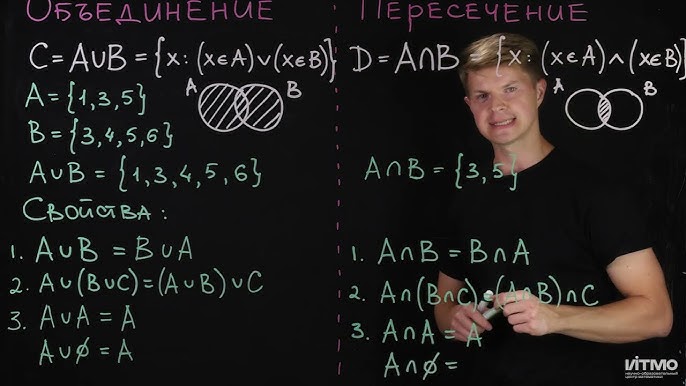 Объединение
C = A∪B = {x: (x∈A)∨(x∈B)}
A = {1,3,5}
A B
B = {3,4,5,6}
A∪B = {1,3,4,5,6}
Свойства:
1. A∪B = B∪A
2. A∪(B∪C)=(A∪B)∪C
3. A∪A = A
A∪∅ = A
Пересечение
D = A∩B = {x: (x∈A)∧(x∈B)}
A B
A∩B = {3,5}
1. A∩B = B∩A
2. A∩(B∩C)=(A∩B)∩C
3. A∩A = A
A∩∅ =
ИТМО